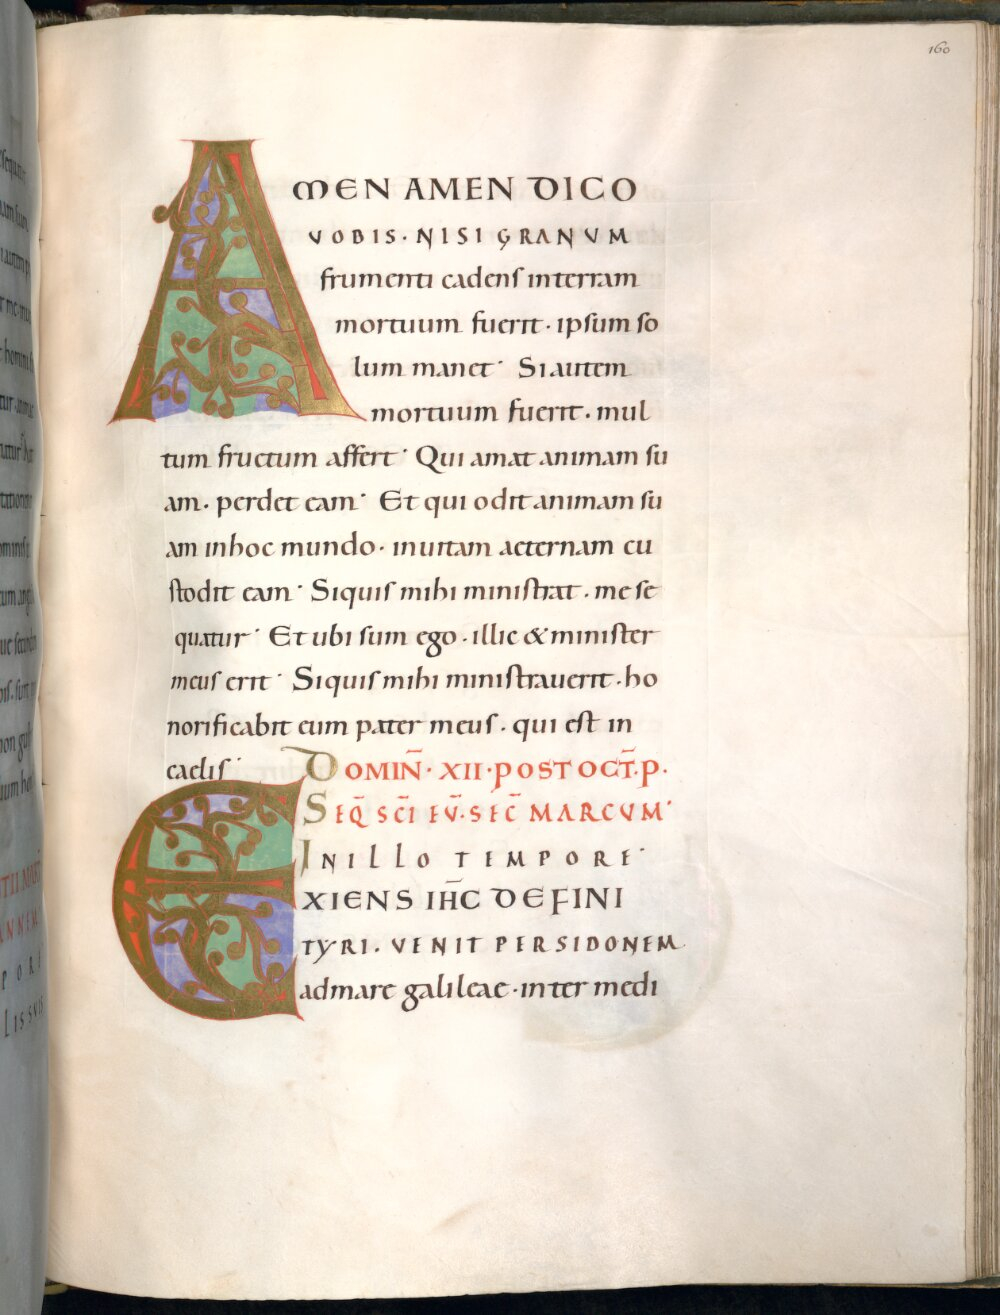 160
AMEN AMEN DICO
VOBIS· NISI GRANVM
frumenti cadens interram
mortuum fuerit· ipsum so
lum manet· Si autem
mortuum fuerit· mul
tum fructum affert· Qui amat animam su
am· perdet eam· Et qui odit animam su
am inhoc mundo· inuitam aeternam cu
stodit eam· Siquis mihi ministrat· me se
quatur· Et ubi sum ego· illic & minister
meus erit· Siquis mihi ministrauerit· ho
norificabit eum pater meus· qui est in
caelis·
DOMIN̄· XII· POST OCT̄· P·
SEQ̄ SC̄I EV̄· SEC̄ MARCVM·
IN ILLO TEMPORE·
EXIENS IH̄C DEFINI
TYRI· VENIT PERSIDONEM
admare galileae· inter medi